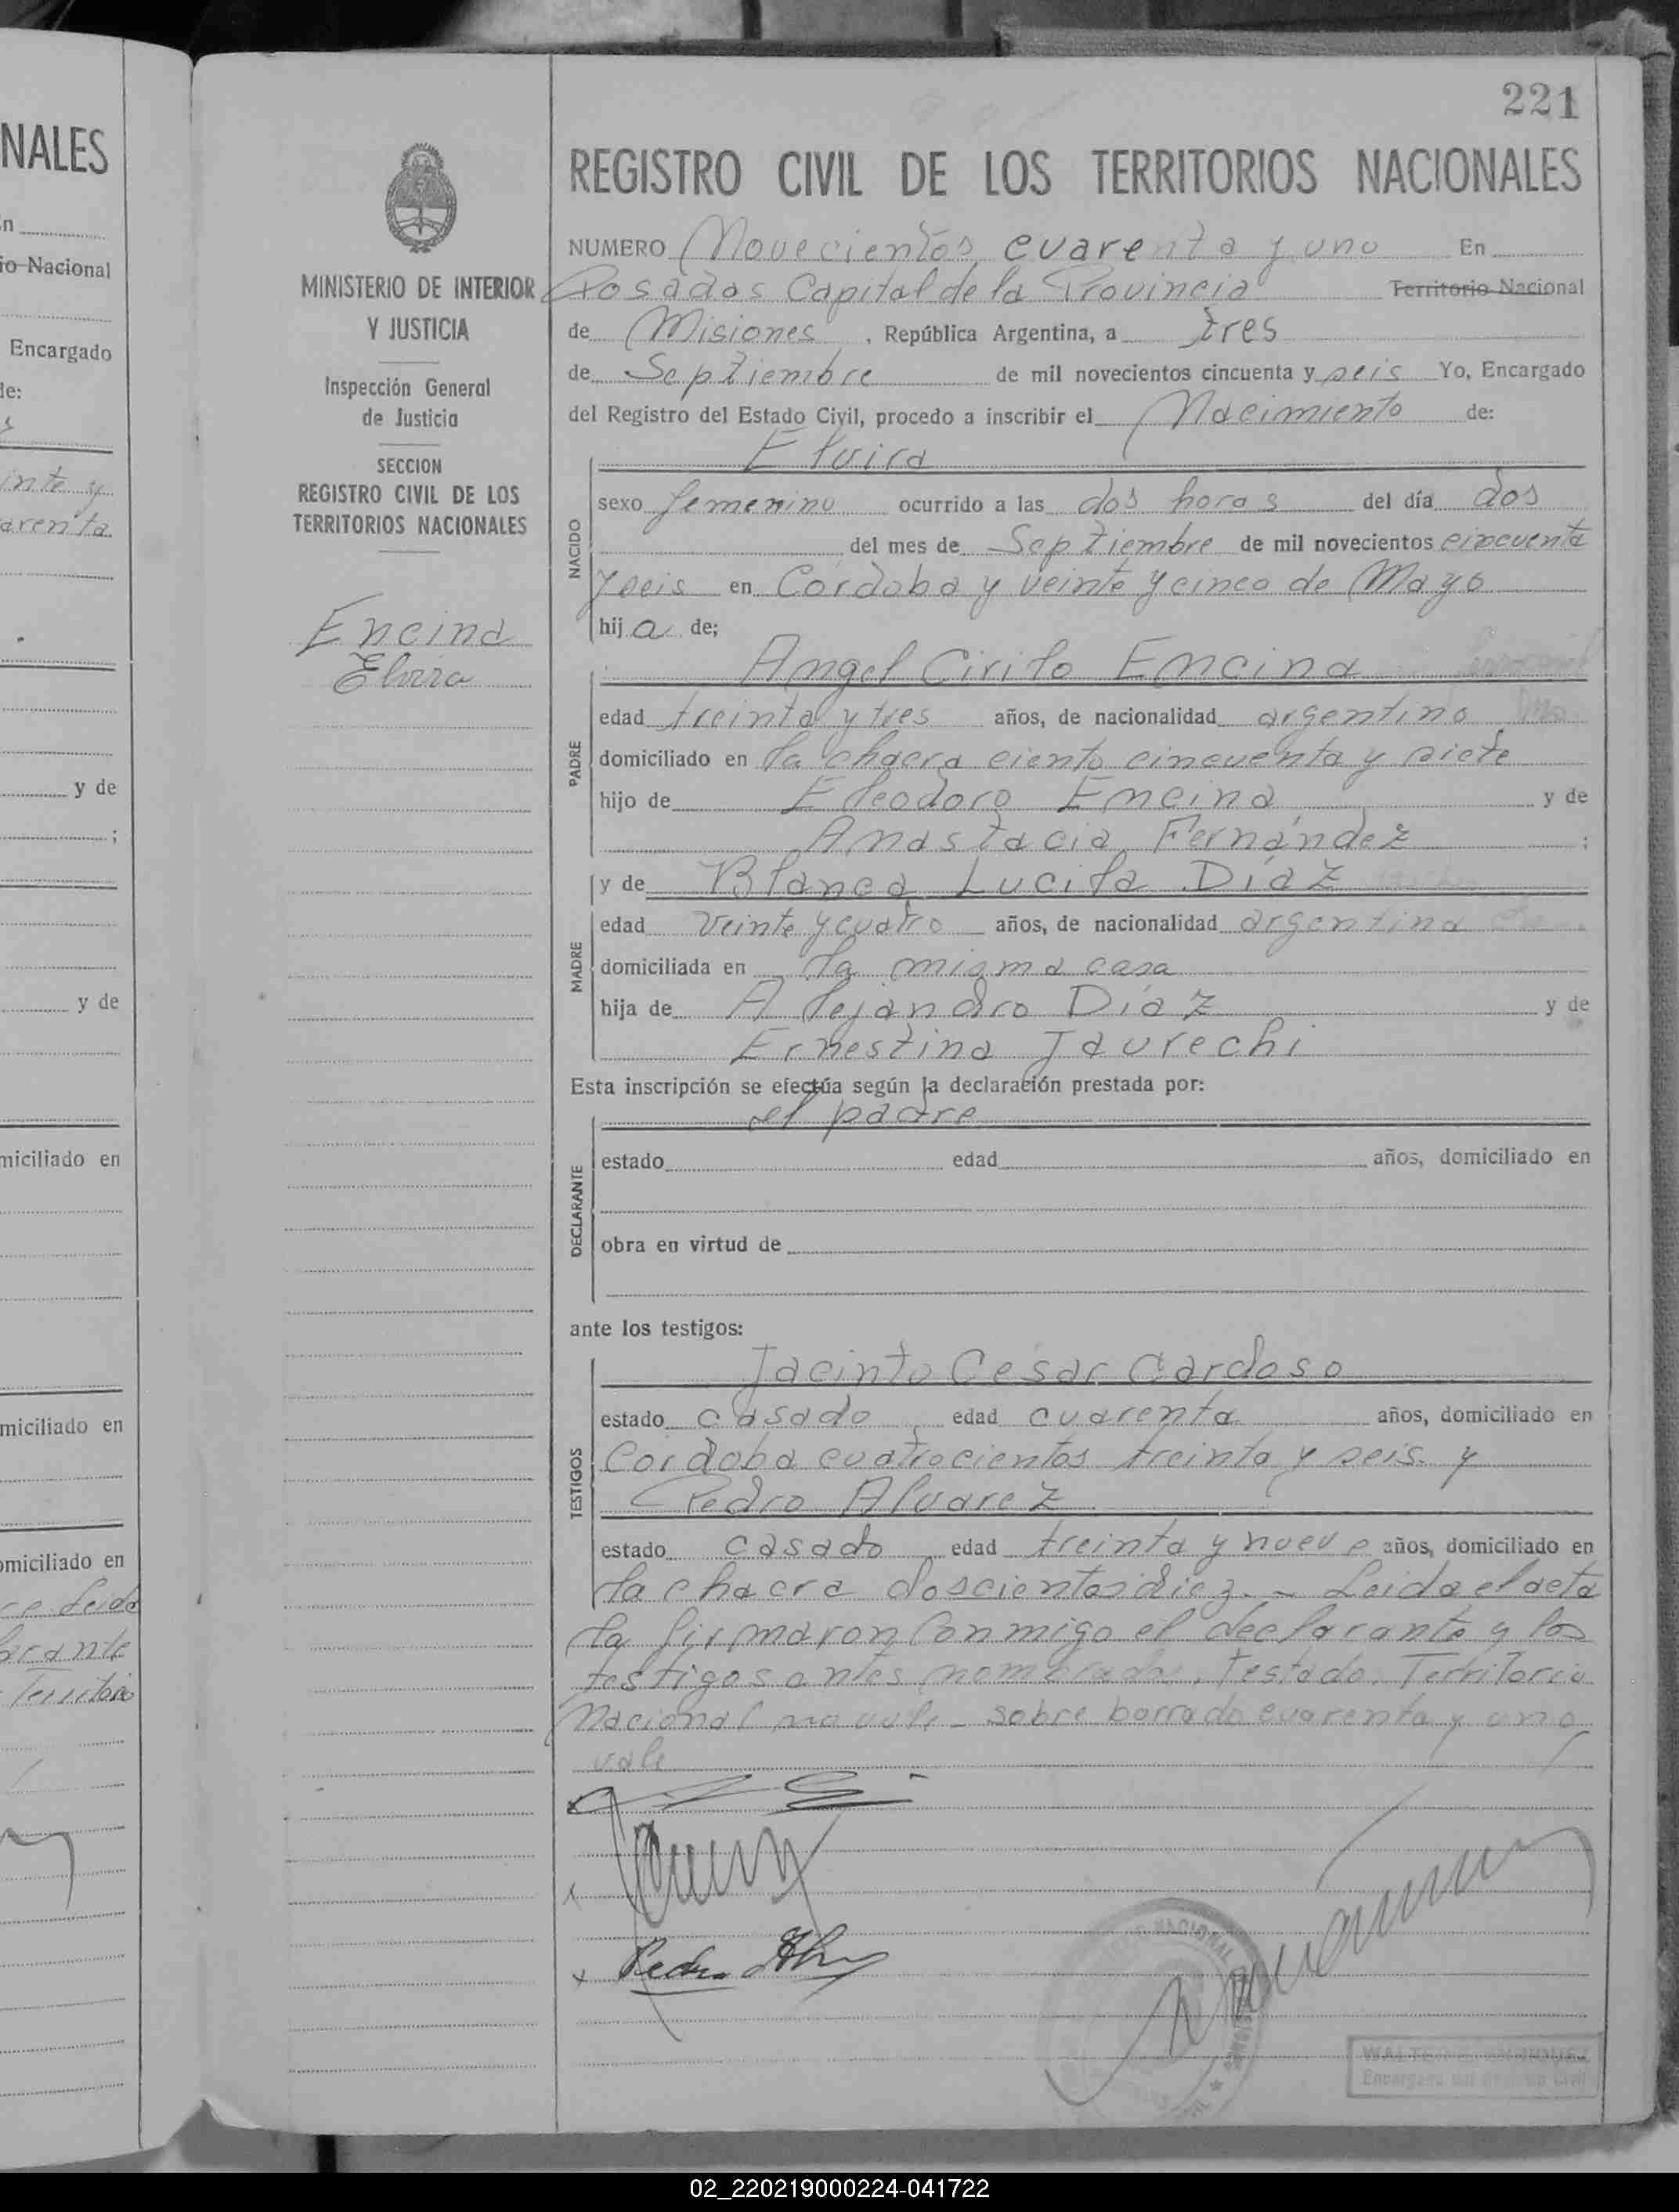 NALES
io Nacional
Encargado
de:
inte y
arenta
y de
;
y de
miciliado en
miciliado en
omiciliado en
221
MINISTERIO DE INTERIOR
Y JUSTICIA
Inspección General
de Justicia
SECCION
REGISTRO CIVIL DE LOS
TERRITORIOS NACIONALES
Encina
Elvira
REGISTRO CIVIL DE LOS TERRITORIOS NACIONALES
NUMERO Novecientos cuarenta y uno En
Posadas Capital de la Provincia Territorio Nacional
de Misiones, República Argentina, a tres
de Septiembre de mil novecientos cincuenta y seis Yo, Encargado
del Registro del Estado Civil, procedo a inscribir el Nacimiento de:
Elvira
NACIDO
sexo femenino ocurrido a las dos horas del día dos
del mes de Septiembre de mil novecientos cincuenta
y seis en Córdoba y veinte y cinco de Mayo
hija de;
Angel Cirilo Encina
PADRE
edad treinta y tres años, de nacionalidad argentino
domiciliado en la chacra ciento cincuenta y siete
hijo de Eleodoro Encina y de
Anastacia Fernández ;
y de Blanca Lucila Díaz
MADRE
edad veinte y cuatro años, de nacionalidad argentina
domiciliada en la misma casa
hija de Alejandro Díaz y de
Ernestina Jaurechi
Esta inscripción se efectúa según la declaración prestada por:
el padre
DECLARANTE
estado edad años, domiciliado en
obra en virtud de
ante los testigos:
Jacinto Cesar Cardoso
TESTIGOS
estado casado edad cuarenta años, domiciliado en
Cordoba cuatrocientos treinta y seis y
Pedro Alvarez
estado casado edad treinta y nueve años, domiciliado en
la chacra doscientos diez. - Leida el acta
la firmaron conmigo el declarante y los
testigos antes nombrados. Testado. Territorio
Nacional no vale - sobre borrado cuarenta y uno
vale
02_220219000224-041722